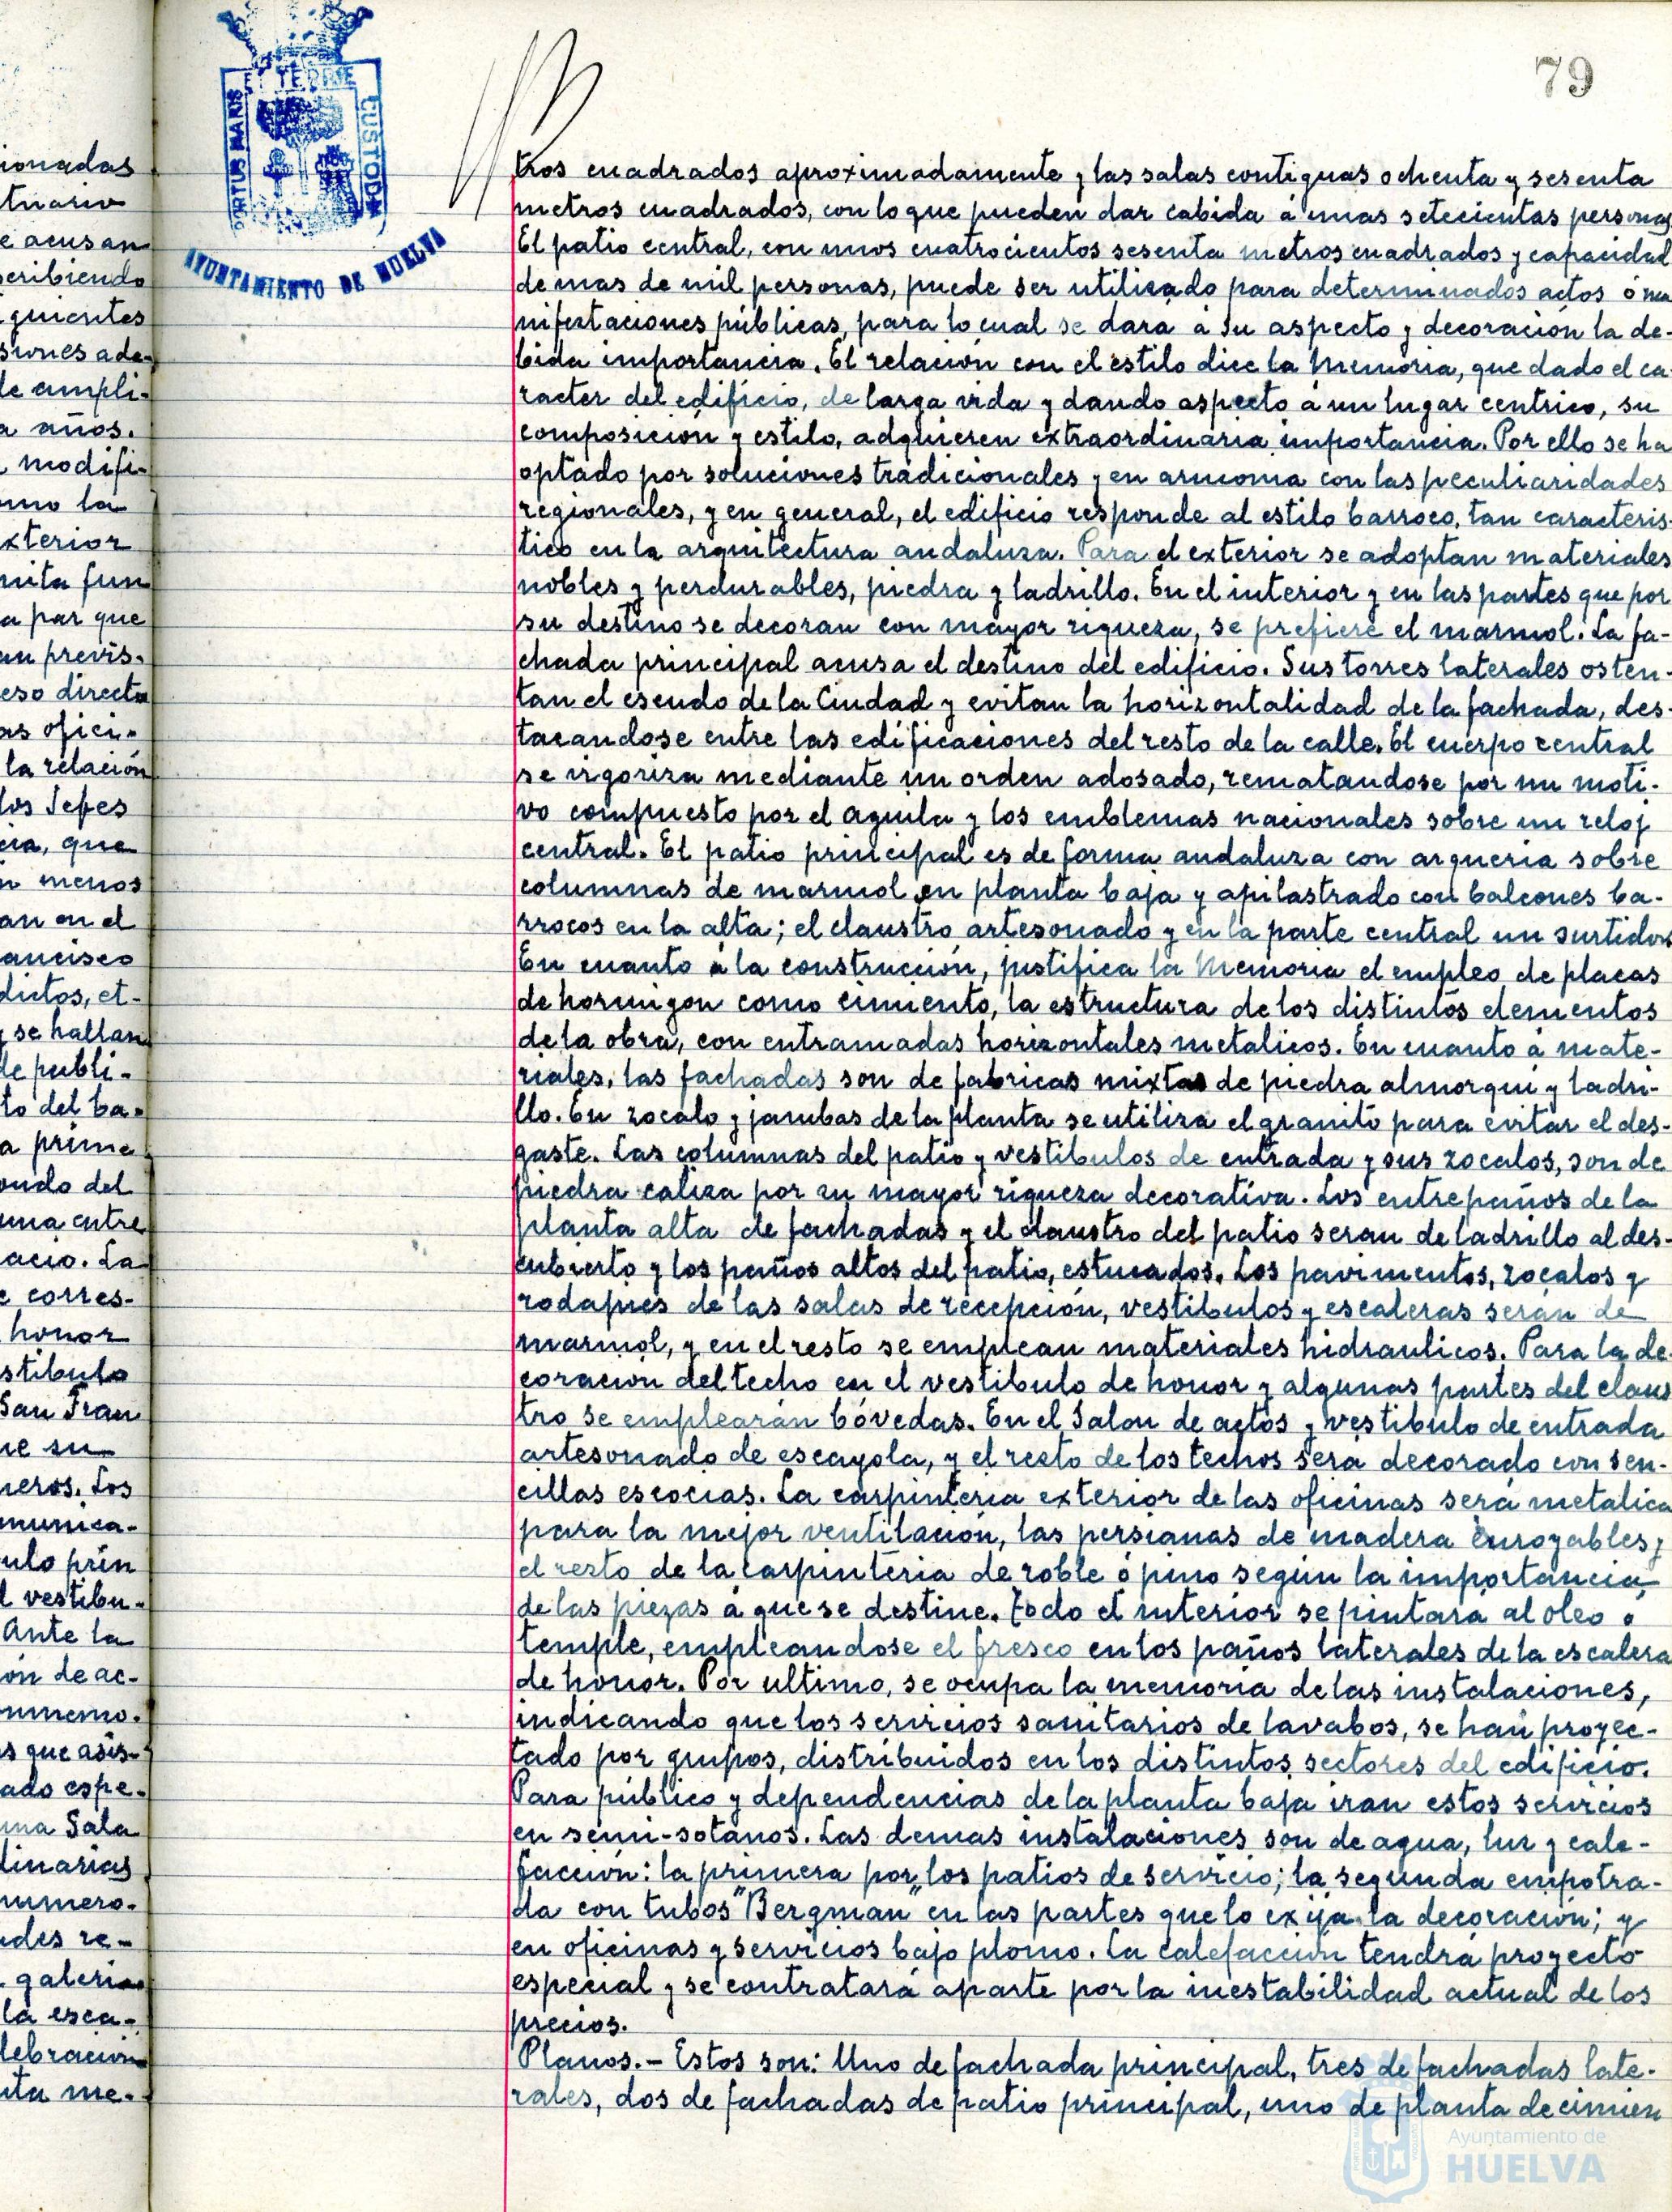 ionadas
tuario
e acusan
scribiendo
guientes
siones ade-
de ampli-
a años.
modifi-
omo la
xterior
mita fun
a par que
an previs-
eso directo
as ofici-
la relación
los Jefes
cia, que
n menos
an en el
ancisco
dictos, et-
y se hallan
de publi-
to del ba-
a prime
ondo del
una entre
acio. La
e corres-
honor
stibulo
San Fran
ue su
neros. Los
munica-
ulo prin
l vestibu-
Ante la
ón de ac-
numero.
s que asis-
ado espe-
una Sala
dinarias
numero-
ades re-
galeria
la esca-
lebración
nta me-
PORTUS MARIS ET TERRE CUSTODIA
AYUNTAMIENTO DE HUELVA
79
tros cuadrados aproximadamente y las salas contiguas ochenta y sesenta
metros cuadrados, con lo que pueden dar cabida á unas setecientas personas.
El patio central, con unos cuatrocientos sesenta metros cuadrados y capacidad
de mas de mil personas, puede ser utilizado para determinados actos ó ma
nifestaciones públicas, para lo cual se dara a su aspecto y decoración la de-
bida importancia. El relación con el estilo dice la Memoria, que dado el ca-
racter del edificio, de larga vida y dando aspecto a un lugar centrico, su
composición y estilo, adquieren extraordinaria importancia. Por ello se ha
optado por soluciones tradicionales y en armonia con las peculiaridades
regionales, y en general, el edificio responde al estilo barroco, tan caracteris-
tico en la arquitectura andaluza. Para el exterior se adoptan materiales
nobles y perdurables, piedra y ladrillo. En el interior y en las partes que por
su destino se decoran con mayor riqueza, se prefiere el marmol. La fa-
chada principal acusa el destino del edificio. Sus torres laterales osten-
tan el escudo de la Ciudad y evitan la horizontalidad de la fachada, des-
tacandose entre las edificaciones del resto de la calle. El cuerpo central
se vigoriza mediante un orden adosado, rematandose por un moti-
vo compuesto por el aguila y los emblemas nacionales sobre un reloj
central. El patio principal es de forma andaluza con arqueria sobre
columnas de marmol en planta baja y apilastrado con balcones ba-
rrocos en la alta; el claustro artesonado y en la parte central un surtidor
En cuanto a la construcción, justifica la Memoria el empleo de placas
de hormigon como cimiento, la estructura de los distintos elementos
de la obra, con entramadas horizontales metalicos. En cuanto a mate-
riales, las fachadas son de fabricas mixtas de piedra almorqui y ladri-
llo. En zocalo y jambas de la planta se utiliza el granito para evitar el des-
gaste. Las columnas del patio y vestibulos de entrada y sus zocalos, son de
piedra caliza por su mayor riqueza decorativa. Los entrepaños de la
planta alta de fachadas y el claustro del patio seran de ladrillo al des-
cubierto y los paños altos del patio, estucados. Los pavimentos, zocalos y
rodapies de las salas de recepción, vestibulos y escaleras serán de
marmol, y en el resto se emplean materiales hidraulicos. Para la de-
coración del techo en el vestibulo de honor y algunas partes del claus
tro se emplearán bóvedas. En el Salon de actos y vestibulo de entrada
artesonado de escayola, y el resto de los techos sera decorado con sen-
cillas escocias. La carpinteria exterior de las oficinas será metalica
para la mejor ventilación, las persianas de madera enroyables y
el resto de la carpinteria de roble ó pino según la importancia
de las piezas a que se destine. Todo el interior se pintará al oleo ó
temple, empleandose el fresco en los paños laterales de la escalera
de honor. Por ultimo, se ocupa la memoria de las instalaciones,
indicando que los servicios sanitarios de lavabos, se han proyec-
tado por grupos, distribuidos en los distintos sectores del edificio.
Para público y dependencias de la planta baja iran estos servicios
en semi-sotanos. Las demas instalaciones son de agua, luz y cale-
facción: la primera por los patios de servicio; la segunda empotra-
da con tubos "Bergman" en las partes que lo exija la decoración; y
en oficinas y servicios bajo plomo. La calefacción tendrá proyecto
especial y se contratará aparte por la inestabilidad actual de los
precios.
Planos.- Estos son: Uno de fachada principal, tres de fachadas late-
rales, dos de fachadas de patio principal, uno de planta de cimien
Ayuntamiento de
HUELVA